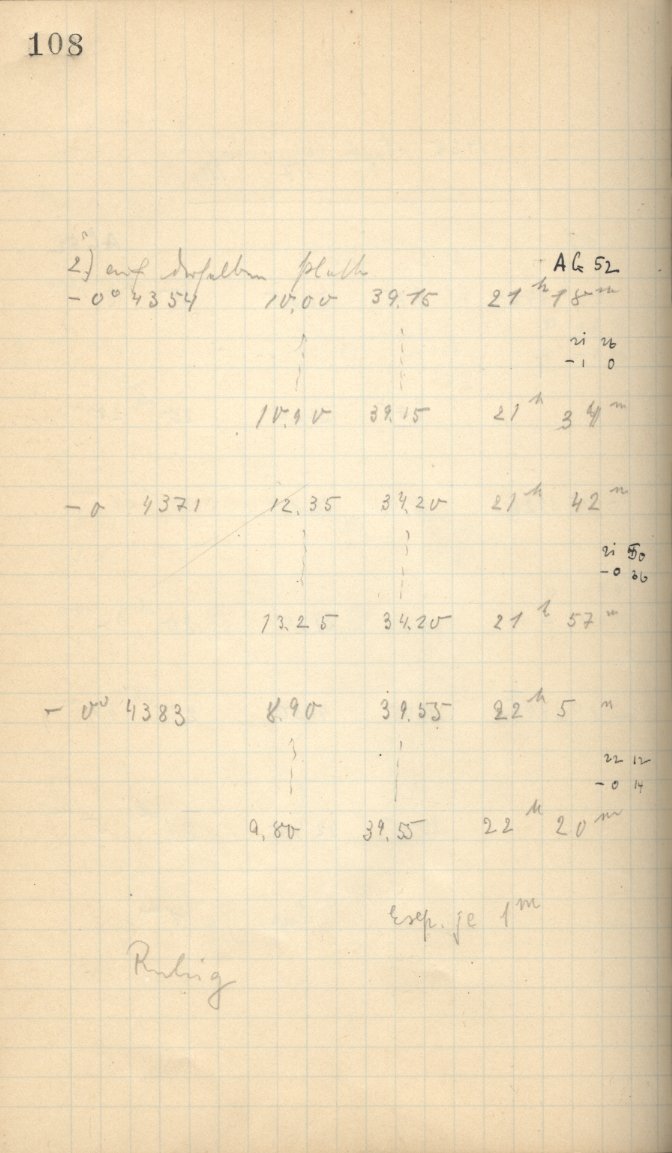 108
2.) auf derselben Platte AG 52
-0° 4354 10.00 39.15 21h 18m
21 26
-1 0
10.90 39.15 21h 34m
-0 4371 12.35 34.20 21h 42m
21 50
-0 36
13.25 34.20 21h 57m
-0° 4383 8.90 39.55 22h 5m
22 12
-0 14
9.80 39.55 22h 20m
Exp. je 1m
Ruhig